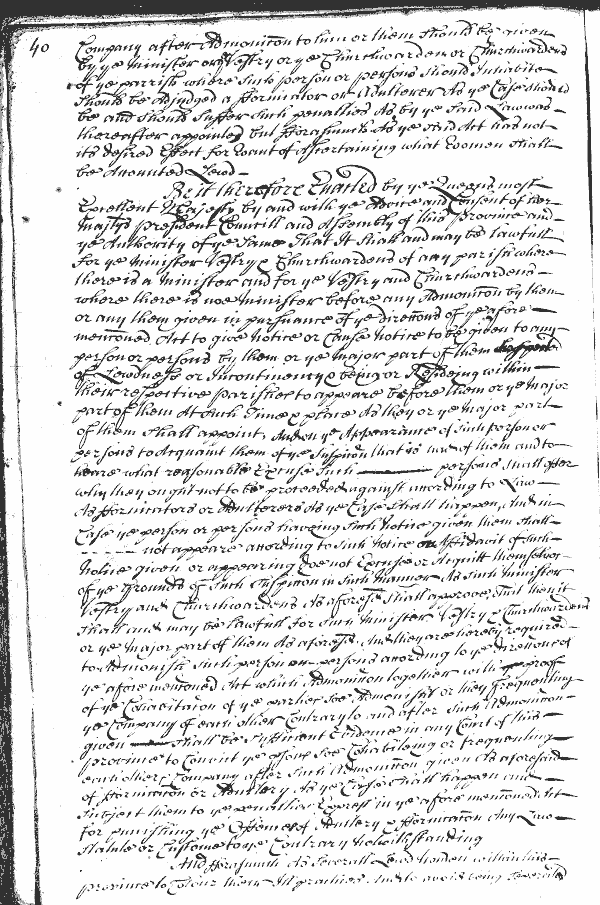 40
Company after Admonicon to him or them should be given
by ye Minister or Vestry or ye Churchwarden or Churchwardens
of ye parrish where such person or persons should Inhabite
should be adjudged a fforniator or Adulterer As ye Case should
be and should suffer such penalties As by ye said Law was
thereafter appointed but fforasmuch As ye said Act has not
its desired Effect for want of Ascertaining what Woemen shall
be Accounted Lewd
Be it therefore Enacted by ye Queens most
Excellent Majesty by and with ye Advice and Consent of her
Majtys president Councill and Assembly of this province and
ye Authority of ye same That It shall and may be lawfull
for ye Minister Vestry & Churchwardens of any parish where
there is a Minister and for ye Vestry and Churchwardens
where there is noe Minister before any Admonicon by them
or any them given in pursuance of ye directions of ye afore
mencioned Act to give Notice or Cause Notice to be given to any
person or persons by them or ye Major part of them suspected
of Lewdness or Incontinency & being or Resideing within
their respective parishes to appeare before them or ye Major
part of them At such time & place As they or ye Major part
of them shall appoint, And on ye Appearance of such person or
persons to Acquaint them of ye suspicion that is had of them and to
heare what reasonable Excuse such persons shall offer
why they ought not to be proceeded against according to Law
As fforniators or Adulterers As ye Case shall happen, And in
Case ye person or persons haveing such Notice given them shall
not appeare according to such Notice on Affidavit of such
Notice given or appearing doe not Excuse or Acquitt themselves
of ye Grounds of such suspicion in such Manner As such Minister
Vestry and Churchwardens As aforesd shall approve, That then it
shall and may be Lawfull for such Minister Vestry & Churchwardens
or ye Major part of them As aforesd And they are hereby required
to Admonish such person or persons according to ye directions of
ye afore mencioned Act which Admonicon together with proof
of ye Cohabitacion of ye parties soe Admonisht or they frequenting
ye Company of each other Contrary to and after such Admonicon
given shall be sufficient Evidence in any Court of this
province to Convict ye persons soe Cohabiteing or frequenting
each others Company after such Admonicon given As aforesaid
of ffornication or Adultery As ye Case shall happen and
subject them to ye penalties Exprest in ye afore mencioned Act
for punishing ye Offences of Adultery & ffornication Any Law
Statute or Custome to ye Contrary notwithstanding
And fforasmuch As severall Lewd Women within this
province to Colour their Ill practices And to avoid being